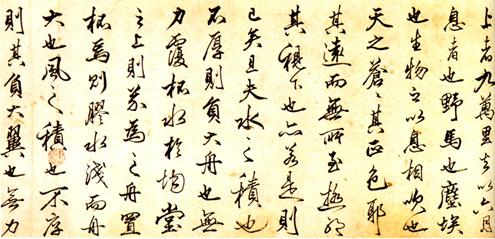 上者九萬里去以六月
息者也野馬也塵埃
也生物之以息相吹也
天之蒼〻其正色耶
其遠而無所至極耶
其視下也亦若是則
已矣且夫水之積也
不厚則負大舟也無
力覆杯水於坳堂
之上則芥為之舟置
杯焉則膠水淺而舟
大也風之積也不厚
則其負大翼也無力